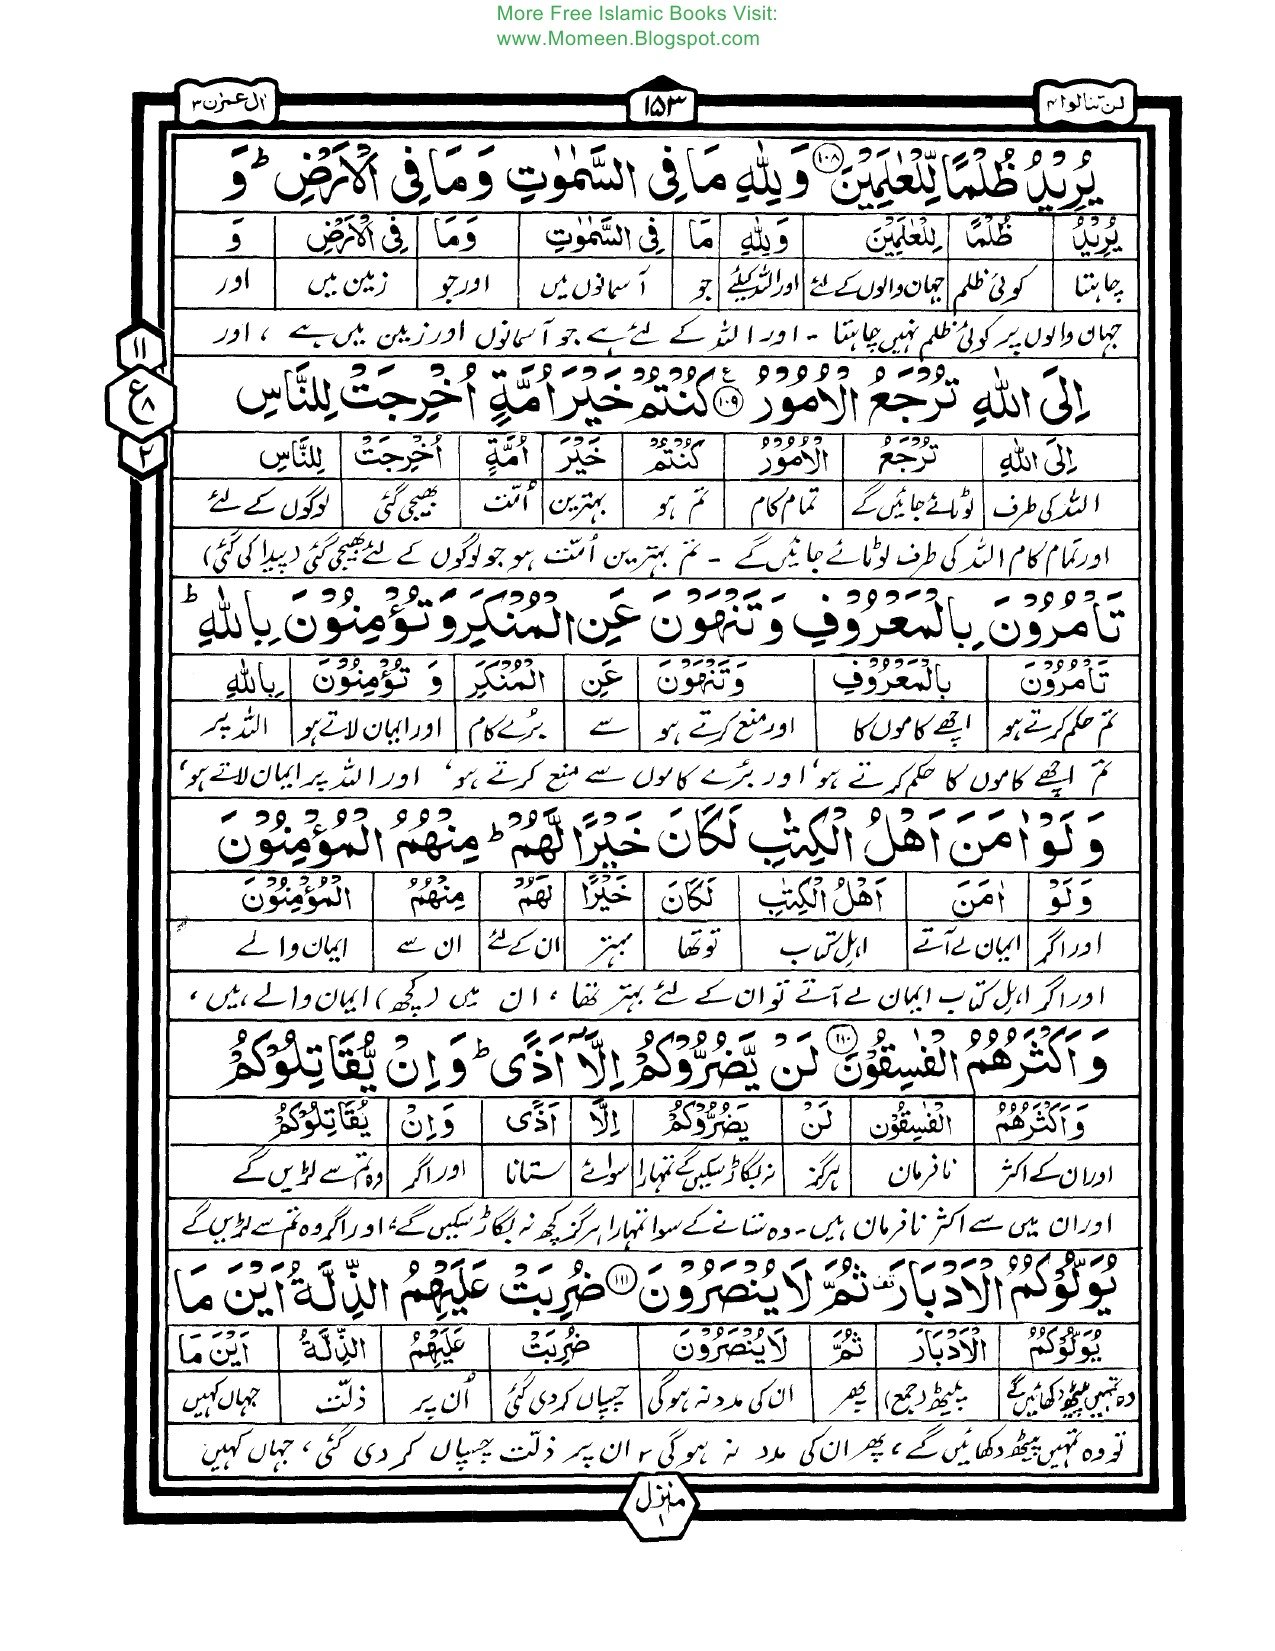 More Free Islamic Books Visit:
www.Momeen.Blogspot.com
لن تنالوا ۴ ۱۵۳ اٰل عمرٰن ۳
یُرِیْدُ ظُلْمًا لِّلْعٰلَمِیْنَ ۱۰۸ وَ لِلّٰهِ مَا فِی السَّمٰوٰتِ وَ مَا فِی الْاَرْضِ ؕ وَ
یُرِیْدُ ظُلْمًا لِلْعٰلَمِیْنَ وَ لِلّٰهِ مَا فِی السَّمٰوٰتِ وَمَا فِی الْاَرْضِ وَ
چاہتا کوئی ظلم جہان والوں کے لئے اور اللہ کیلئے جو آسمانوں میں اور جو زمین میں اور
جہان والوں پر کوئی ظلم نہیں چاہتا - اور اللہ کے لئے ہے جو آسمانوں اور زمین میں ہے ، اور
۱۱
ع ۸
۲
اِلَی اللّٰهِ تُرْجَعُ الْاُمُوْرُ ۱۰۹ ع كُنْتُمْ خَیْرَ اُمَّةٍ اُخْرِجَتْ لِلنَّاسِ
اِلَی اللّٰهِ تُرْجَعُ الْاُمُوْرُ كُنْتُمْ خَیْرَ اُمَّةٍ اُخْرِجَتْ لِلنَّاسِ
اللہ کی طرف لوٹائے جائیں گے تمام کام تم ہو بہترین اُمّت بھیجی گئی لوگوں کے لئے
اور تمام کام اللہ کی طرف لوٹائے جائیں گے - تم بہترین اُمّت ہو جو لوگوں کے لئے بھیجی گئی (پیدا کی گئی)
تَاْمُرُوْنَ بِالْمَعْرُوْفِ وَ تَنْهَوْنَ عَنِ الْمُنْكَرِ وَ تُؤْمِنُوْنَ بِاللّٰهِ ؕ
تَاْمُرُوْنَ بِالْمَعْرُوْفِ وَ تَنْهَوْنَ عَنِ الْمُنْكَرِ وَ تُؤْمِنُوْنَ بِاللّٰهِ
تم حکم کرتے ہو اچھے کاموں کا اور منع کرتے ہو سے بُرے کام اور ایمان لاتے ہو اللہ پر
تم اچھے کاموں کا حکم کرتے ہو، اور بُرے کاموں سے منع کرتے ہو، اور اللہ پر ایمان لاتے ہو،
وَ لَوْ اٰمَنَ اَهْلُ الْكِتٰبِ لَكَانَ خَیْرًا لَّهُمْ ؕ مِنْهُمُ الْمُؤْمِنُوْنَ
وَ لَوْ اٰمَنَ اَهْلُ الْكِتٰبِ لَكَانَ خَیْرًا لَهُمْ مِنْهُمُ الْمُؤْمِنُوْنَ
اور اگر ایمان لے آتے اہل کتاب تو تھا بہتر ان کے لئے ان سے ایمان والے
اور اگر اہل کتاب ایمان لے آتے تو ان کے لئے بہتر تھا ، ان میں (کچھ) ایمان والے ہیں ،
وَ اَكْثَرُهُمُ الْفٰسِقُوْنَ ۱۱۰ لَنْ یَّضُرُّوْكُمْ اِلَّاۤ اَذًی ؕ وَ اِنْ یُّقَاتِلُوْكُمْ
وَ اَكْثَرُهُمُ الْفٰسِقُوْنَ لَنْ یَضُرُّوْكُمْ اِلَّا اَذًی وَ اِنْ یُقَاتِلُوْكُمْ
اور ان کے اکثر نافرمان ہرگز نہ بگاڑ سکیں گے تمہارا سوائے ستانا اور اگر وہ تم سے لڑیں گے
اور ان میں سے اکثر نافرمان ہیں - وہ ستانے کے سوا تمہارا ہرگز کچھ نہ بگاڑ سکیں گے؛ اور اگر وہ تم سے لڑیں گے
یُوَلُّوْكُمُ الْاَدْبَارَ ثُمَّ لَا یُنْصَرُوْنَ ۱۱۱ ضُرِبَتْ عَلَیْهِمُ الذِّلَّةُ اَیْنَ مَا
یُوَلُّوْكُمُ الْاَدْبَارَ ثُمَّ لَا یُنْصَرُوْنَ ضُرِبَتْ عَلَیْهِمُ الذِّلَّةُ اَیْنَ مَا
وہ تمہیں پیٹھ دکھائیں گے پیٹھ (جمع) پھر ان کی مدد نہ ہوگی چسپاں کردی گئی اُن پر ذلّت جہاں کہیں
تو وہ تمہیں پیٹھ دکھائیں گے ، پھر ان کی مدد نہ ہوگی ، ان پر ذلّت چسپاں کر دی گئی ، جہاں کہیں
منزل ۱